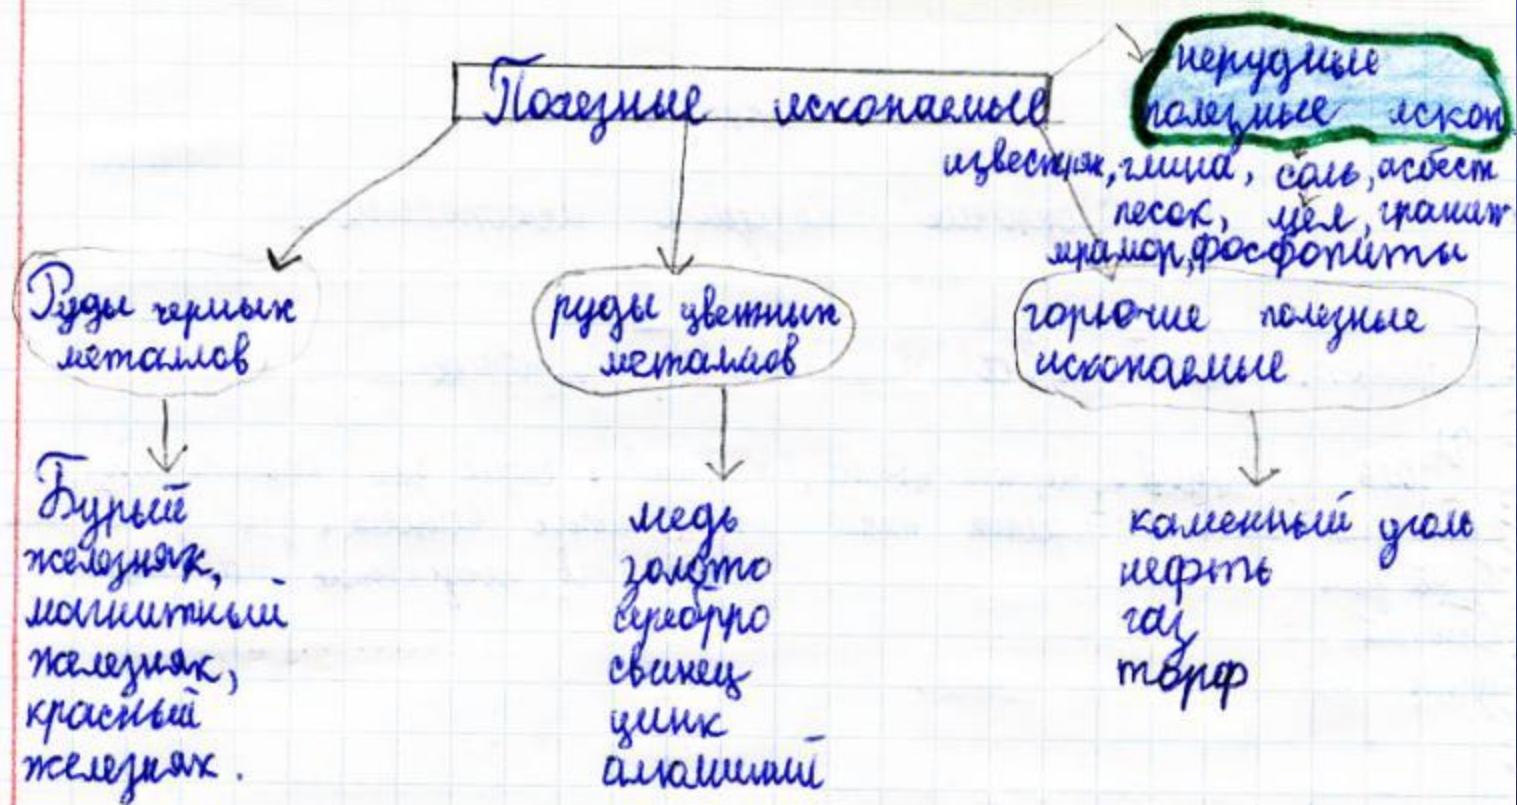 Полезные ископаемые
нерудные
полезные ископ.
известняк, глина, соль, асбест
песок, мел, гранит
мрамор, фосфориты
Руды черных
металлов
руды цветных
металлов
горючие полезные
ископаемые
Бурый
железняк,
магнитный
железняк,
красный
железняк.
медь
золото
серебрро
свинец
цинк
алюминий
каменный уголь
нефть
газ
торф